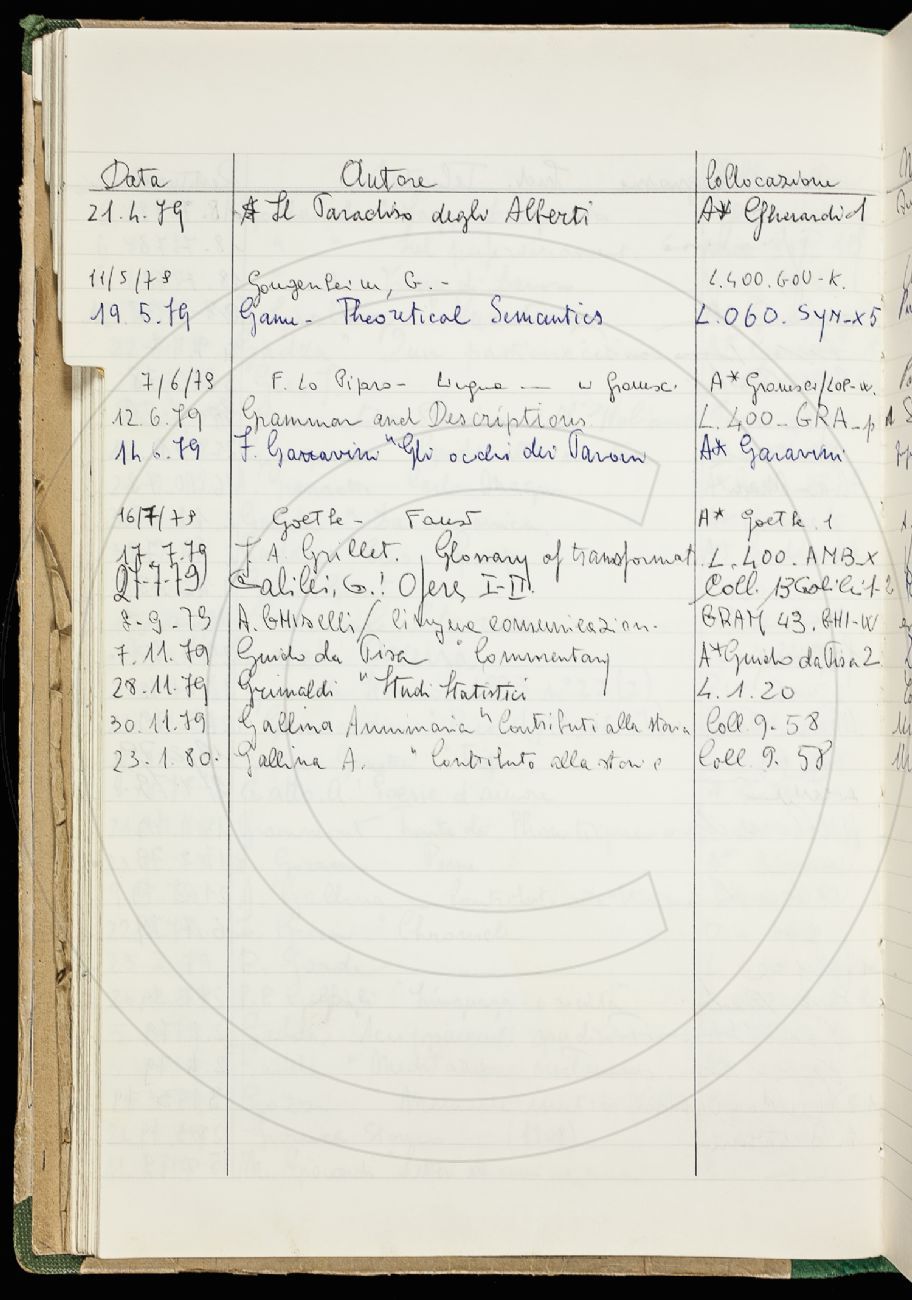 Data Autore Collocazione
21.4.79 Il Paradiso degli Alberti A* Gherardi d1
11/5/79 Gougenheim, G. - L.400.GOU-K.
19.5.79 Game - Theoretical Semantics L.060.SYN-X5
7/6/79 F. Lo Piparo - Lingua — in Gramsc. A* Gramsci/LOP-w.
12.6.79 Grammar and Descriptions L.400-GRA-p
14.6.79 F. Garavini "Gli occhi dei Pavoni A* Garavini
16/7/79 Goethe - Faust A* Goethe.1
17.7.79 J A. Grillet. Glossary of transformat. L.400.AMB-X
27-7-79 Galilei, G.: Opere I-II. Coll. B Galilei 1-2
7-9-79 A. GHISelli / lingua comunicazion. GRAM 43.GHI-W
7.11.79 Guido da Pisa " Commentary A* Guido da Pisa 2
28.11.79 Grimaldi " Studi Statistici L.1.20
30.11.79 Gallina Annamaria " Contributi alla storia Coll. 9-58
23.1.80. Gallina A. " Contributo alla storia Coll. 9. 58